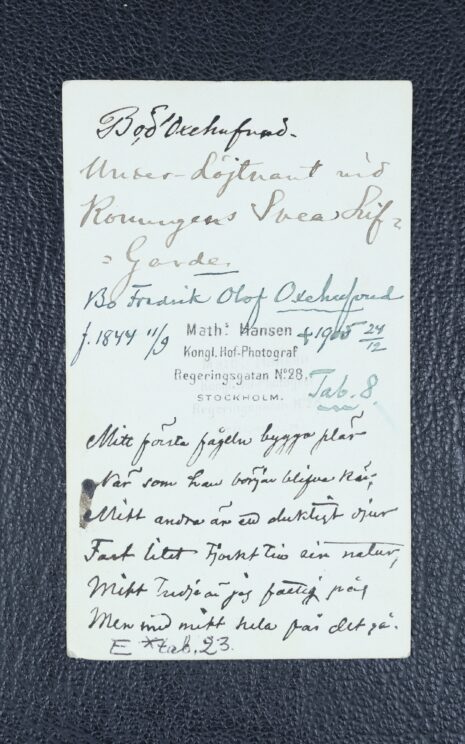 Bo Oxehufvud.
Under-Löjtnant vid
Konungens Svea Lif=
=Garde.
Bo Fredrik Olof Oxehufvud
f. 1844 11/9
+ 1905 24/12
Math.s Hansen
Kongl. Hof-Photograf
Regeringsgatan No 28.
STOCKHOLM.
Tab. 8.
Mitt första fågeln bygga plär
När som han börjar blifva kär,
Mitt andra är ett duktigt djur
Fast litet tjockt till sin natur,
Mitt tredje är jag fattig på
Men med mitt hela får det gå.
E * tab. 23.